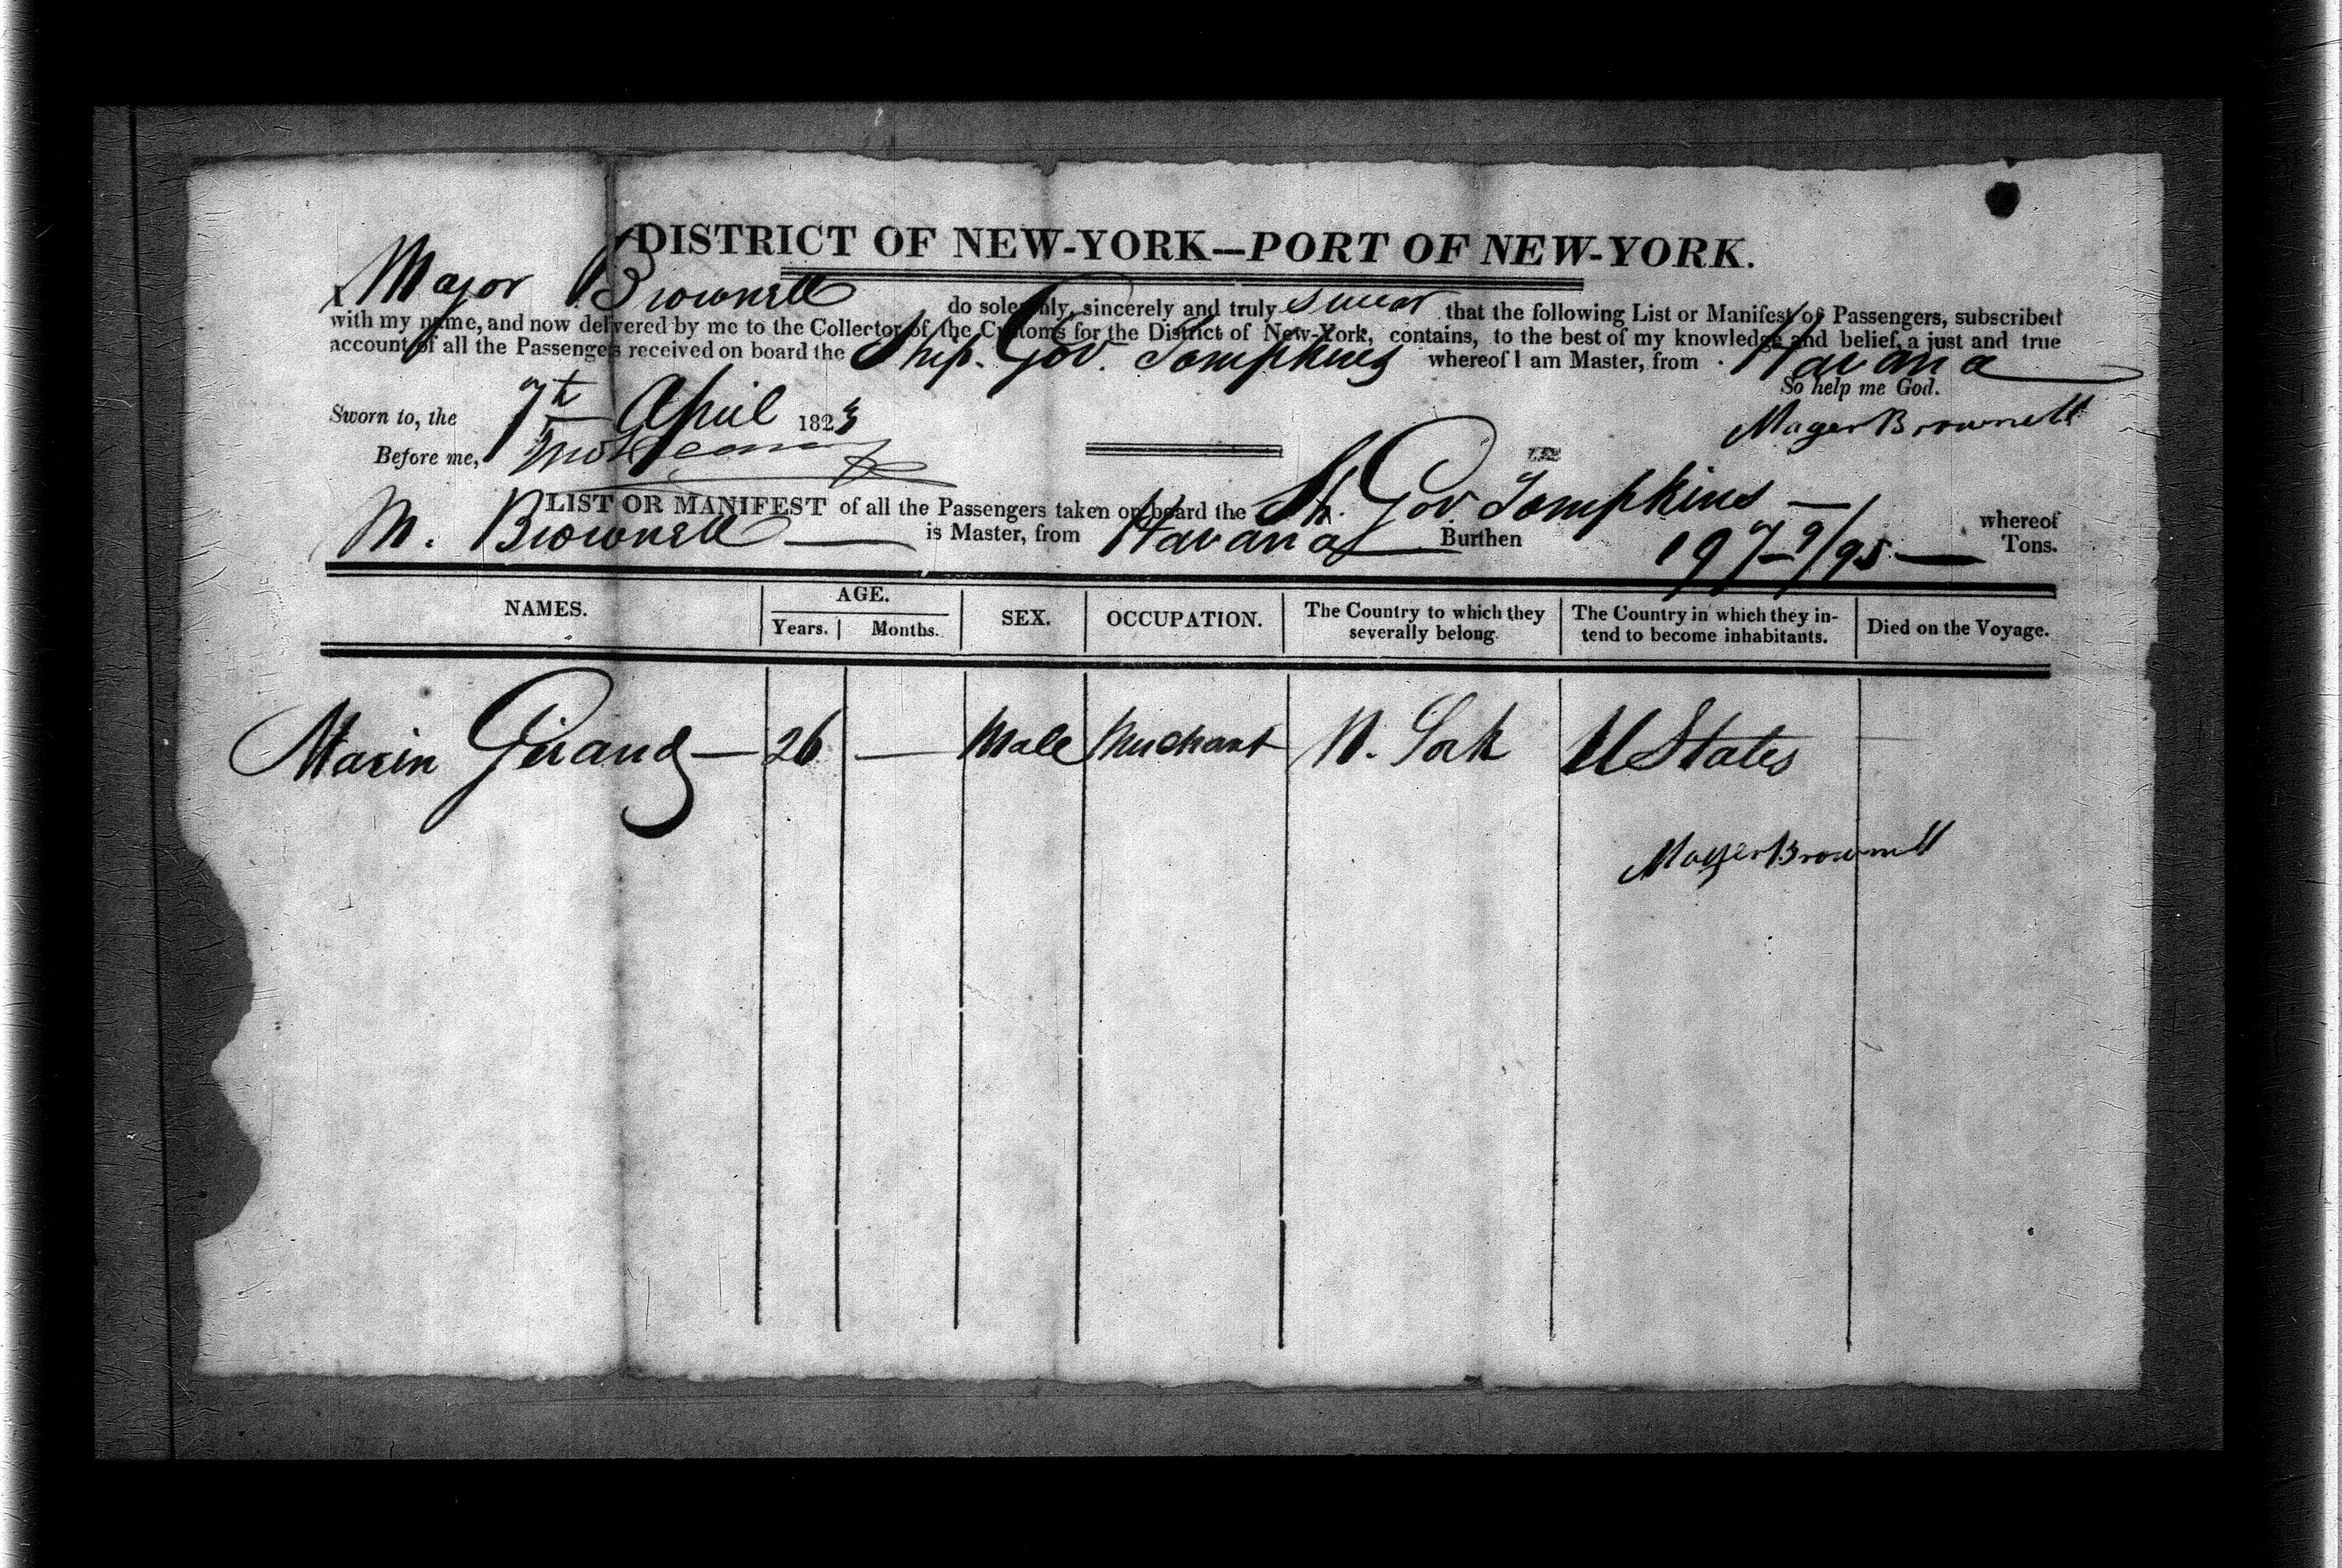 DISTRICT OF NEW-YORK—PORT OF NEW-YORK.
I Major Brownell do solemnly, sincerely and truly swear that the following List or Manifest of Passengers, subscribed
with my name, and now delivered by me to the Collector of the Customs for the District of New-York, contains, to the best of my knowledge and belief, a just and true
account of all the Passengers received on board the Ship. Gov. Tompkins whereof I am Master, from Havana
So help me God.
Sworn to, the 7th April 1823
Mager Brownell
Before me,
LIST OR MANIFEST of all the Passengers taken on board the Sh. Gov Tompkins — whereof
M. Brownell — is Master, from Havana Burthen 197 9/95 — Tons.
NAMES. AGE. Years. Months. SEX. OCCUPATION. The Country to which they severally belong. The Country in which they intend to become inhabitants. Died on the Voyage.
Marin Giraud — 26 — Male Merchant N. York U States
Mager Brownell